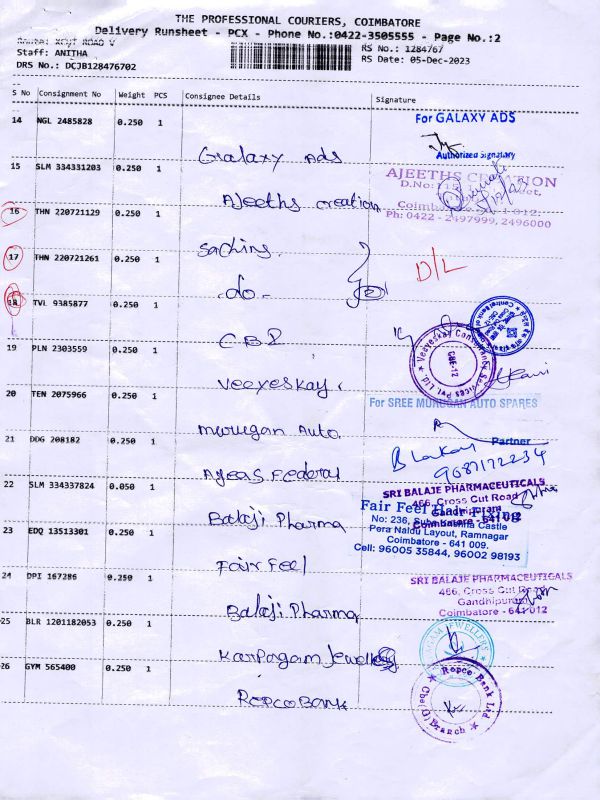 THE PROFESSIONAL COURIERS, COIMBATORE
Delivery Runsheet - PCX - Phone No.:0422-3505555 - Page No.:2
ROAD V
Staff: ANITHA
RS No.: 1284767
DRS No.: DCJB128476702
RS Date: 05-Dec-2023
S No Consignment No Weight PCS Consignee Details Signature
14 NGL 2485828 0.250 1
Galaxy Ads
For GALAXY ADS
Authorized Signatory
15 SLM 334331203 0.250 1
Ajeeths creation
AJEETHS CREATION
D.No:
Coimbatore
Ph: 0422 - 2497999, 2496000
16 THN 220721129 0.250 1
Sachins.
17 THN 220721261 0.250 1
-do-
D/L
18 TVL 9385877 0.250 1
CBI
19 PLN 2303559 0.250 1
Veeyeskay
Veeyeskay Consultancy Services Pvt. Ltd.
CBE-12
20 TEN 2075966 0.250 1
Murugan Auto
For SREE MURUGAN AUTO SPARES
Partner
21 DDG 208182 0.250 1
Ageas Federal
22 SLM 334337824 0.050 1
Balaji Pharma
SRI BALAJE PHARMACEUTICALS
466, Cross Cut Road
Gandhipuram
Coimbatore - 641 012
23 EDQ 13513301 0.250 1
Fair Feel
Fair Feel
No: 236, Castle
Pera Naidu Layout, Ramnagar
Coimbatore - 641 009.
Cell: 96005 35844, 96002 98193
24 DPI 167286 0.250 1
Balaji Pharma
SRI BALAJE PHARMACEUTICALS
466, Cross Cut Road
Gandhipuram
Coimbatore - 641 012
25 BLR 1201182053 0.250 1
Karpagam Jewellers
26 GYM 565400 0.250 1
Repco Bank
Repco Bank Ltd
Branch